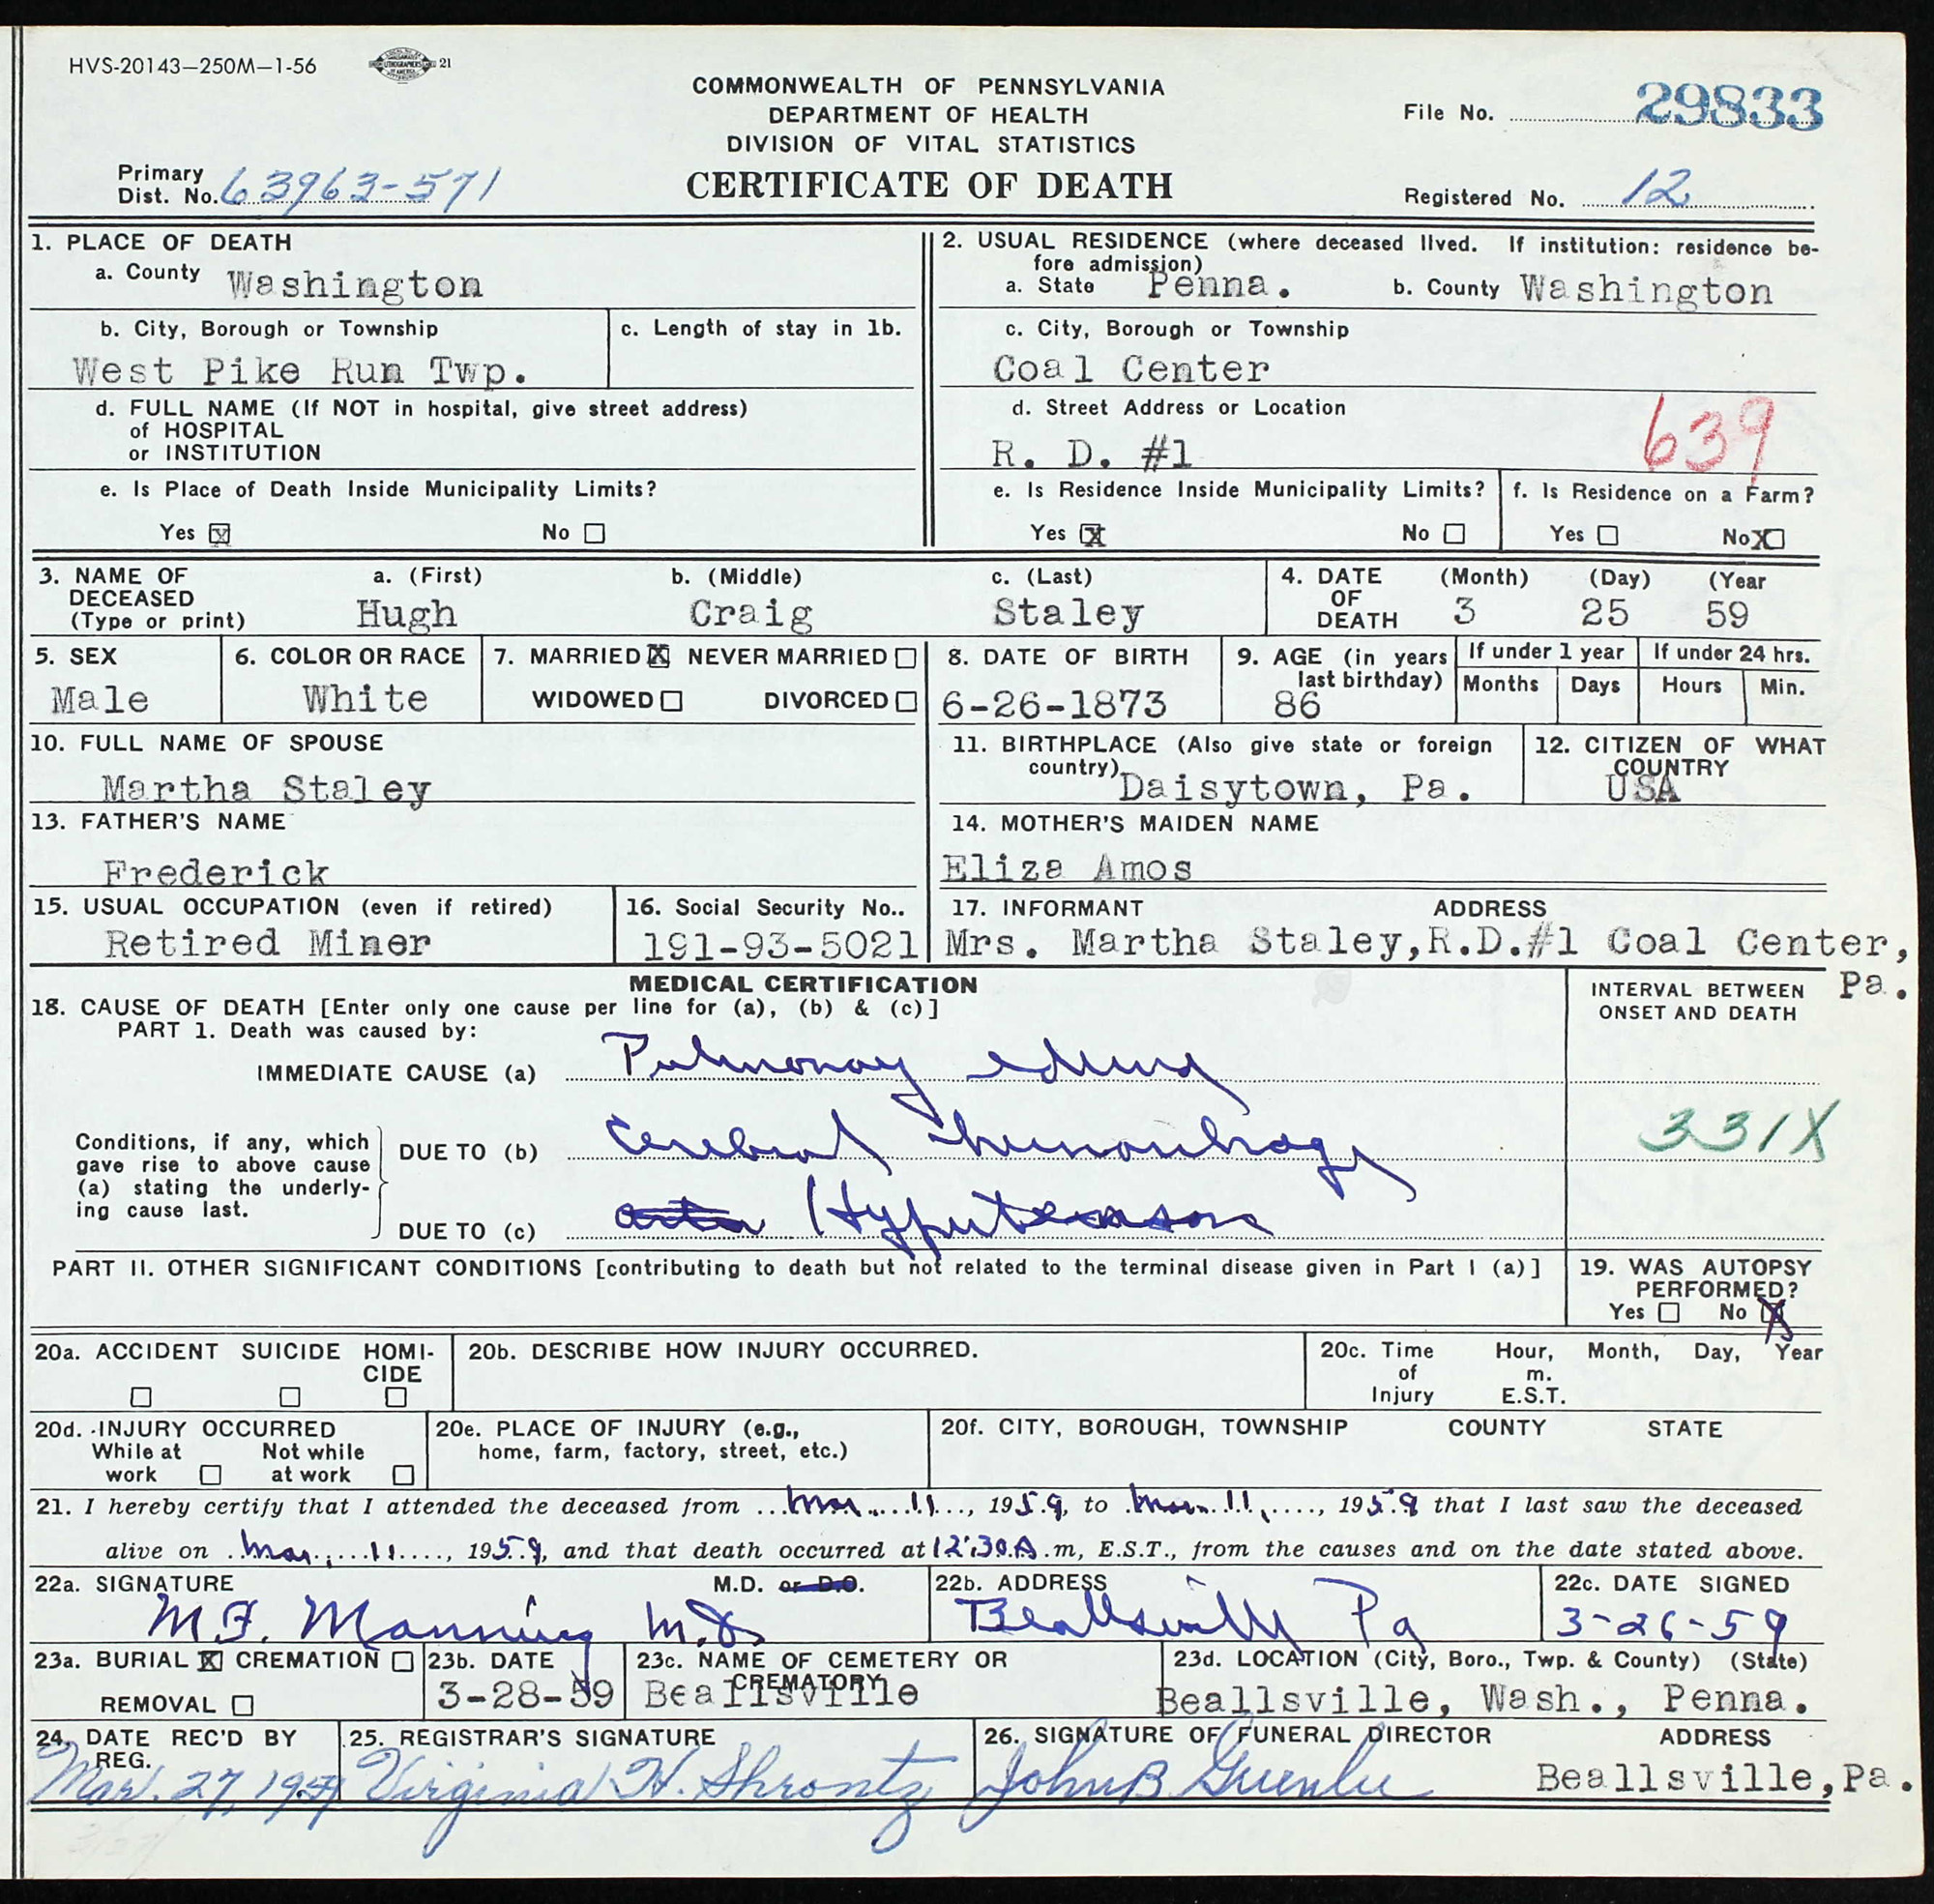 HVS-20143—250M—1-56
21
COMMONWEALTH OF PENNSYLVANIA
DEPARTMENT OF HEALTH
DIVISION OF VITAL STATISTICS
CERTIFICATE OF DEATH
File No. 29833
Primary
Dist. No. 63963-571
Registered No. 12
1. PLACE OF DEATH
a. County Washington
2. USUAL RESIDENCE (where deceased lived. If institution: residence be-
fore admission)
a. State Penna. b. County Washington
b. City, Borough or Township
West Pike Run Twp.
c. Length of stay in 1b.
c. City, Borough or Township
Coal Center
d. FULL NAME (If NOT in hospital, give street address)
of HOSPITAL
or INSTITUTION
d. Street Address or Location
R. D. #1
639
e. Is Place of Death Inside Municipality Limits?
Yes X No
e. Is Residence Inside Municipality Limits?
Yes X No
f. Is Residence on a Farm?
Yes No X
3. NAME OF
DECEASED
(Type or print)
a. (First) b. (Middle) c. (Last)
Hugh Craig Staley
4. DATE
OF
DEATH
(Month) (Day) (Year
3 25 59
5. SEX
Male
6. COLOR OR RACE
White
7. MARRIED X NEVER MARRIED
WIDOWED DIVORCED
8. DATE OF BIRTH
6-26-1873
9. AGE (in years
last birthday)
86
If under 1 year
Months Days
If under 24 hrs.
Hours Min.
10. FULL NAME OF SPOUSE
Martha Staley
11. BIRTHPLACE (Also give state or foreign
country)
Daisytown, Pa.
12. CITIZEN OF WHAT
COUNTRY
USA
13. FATHER'S NAME
Frederick
14. MOTHER'S MAIDEN NAME
Eliza Amos
15. USUAL OCCUPATION (even if retired)
Retired Miner
16. Social Security No..
191-93-5021
17. INFORMANT ADDRESS
Mrs. Martha Staley,R.D.#1 Coal Center,
Pa.
MEDICAL CERTIFICATION
18. CAUSE OF DEATH [Enter only one cause per line for (a), (b) & (c)]
PART 1. Death was caused by:
INTERVAL BETWEEN
ONSET AND DEATH
IMMEDIATE CAUSE (a) Pulmonary edema
Conditions, if any, which
gave rise to above cause
(a) stating the underly-
ing cause last.
DUE TO (b) Cerebral hemorrhage
331X
DUE TO (c) Hypertension
PART II. OTHER SIGNIFICANT CONDITIONS [contributing to death but not related to the terminal disease given in Part I (a)]
19. WAS AUTOPSY
PERFORMED?
Yes No X
20a. ACCIDENT SUICIDE HOMI-
CIDE
20b. DESCRIBE HOW INJURY OCCURRED.
20c. Time
of
Injury
Hour, Month, Day, Year
m.
E.S.T.
20d. INJURY OCCURRED
While at
work
Not while
at work
20e. PLACE OF INJURY (e.g.,
home, farm, factory, street, etc.)
20f. CITY, BOROUGH, TOWNSHIP COUNTY STATE
21. I hereby certify that I attended the deceased from Mar. 11, 1959, to Mar. 11, 1959 that I last saw the deceased
alive on Mar. 11, 1959, and that death occurred at 12:30 A.m, E.S.T., from the causes and on the date stated above.
22a. SIGNATURE M.D. or D.O.
M. F. Manning M.D.
22b. ADDRESS
Beallsville Pa
22c. DATE SIGNED
3-26-59
23a. BURIAL X CREMATION
REMOVAL
23b. DATE
3-28-59
23c. NAME OF CEMETERY OR
CREMATORY
Beallsville
23d. LOCATION (City, Boro., Twp. & County) (State)
Beallsville, Wash., Penna.
24. DATE REC'D BY
REG.
Mar. 27, 1959
25. REGISTRAR'S SIGNATURE
Virginia H. Shrontz
26. SIGNATURE OF FUNERAL DIRECTOR ADDRESS
John B Greenlee
Beallsville,Pa.